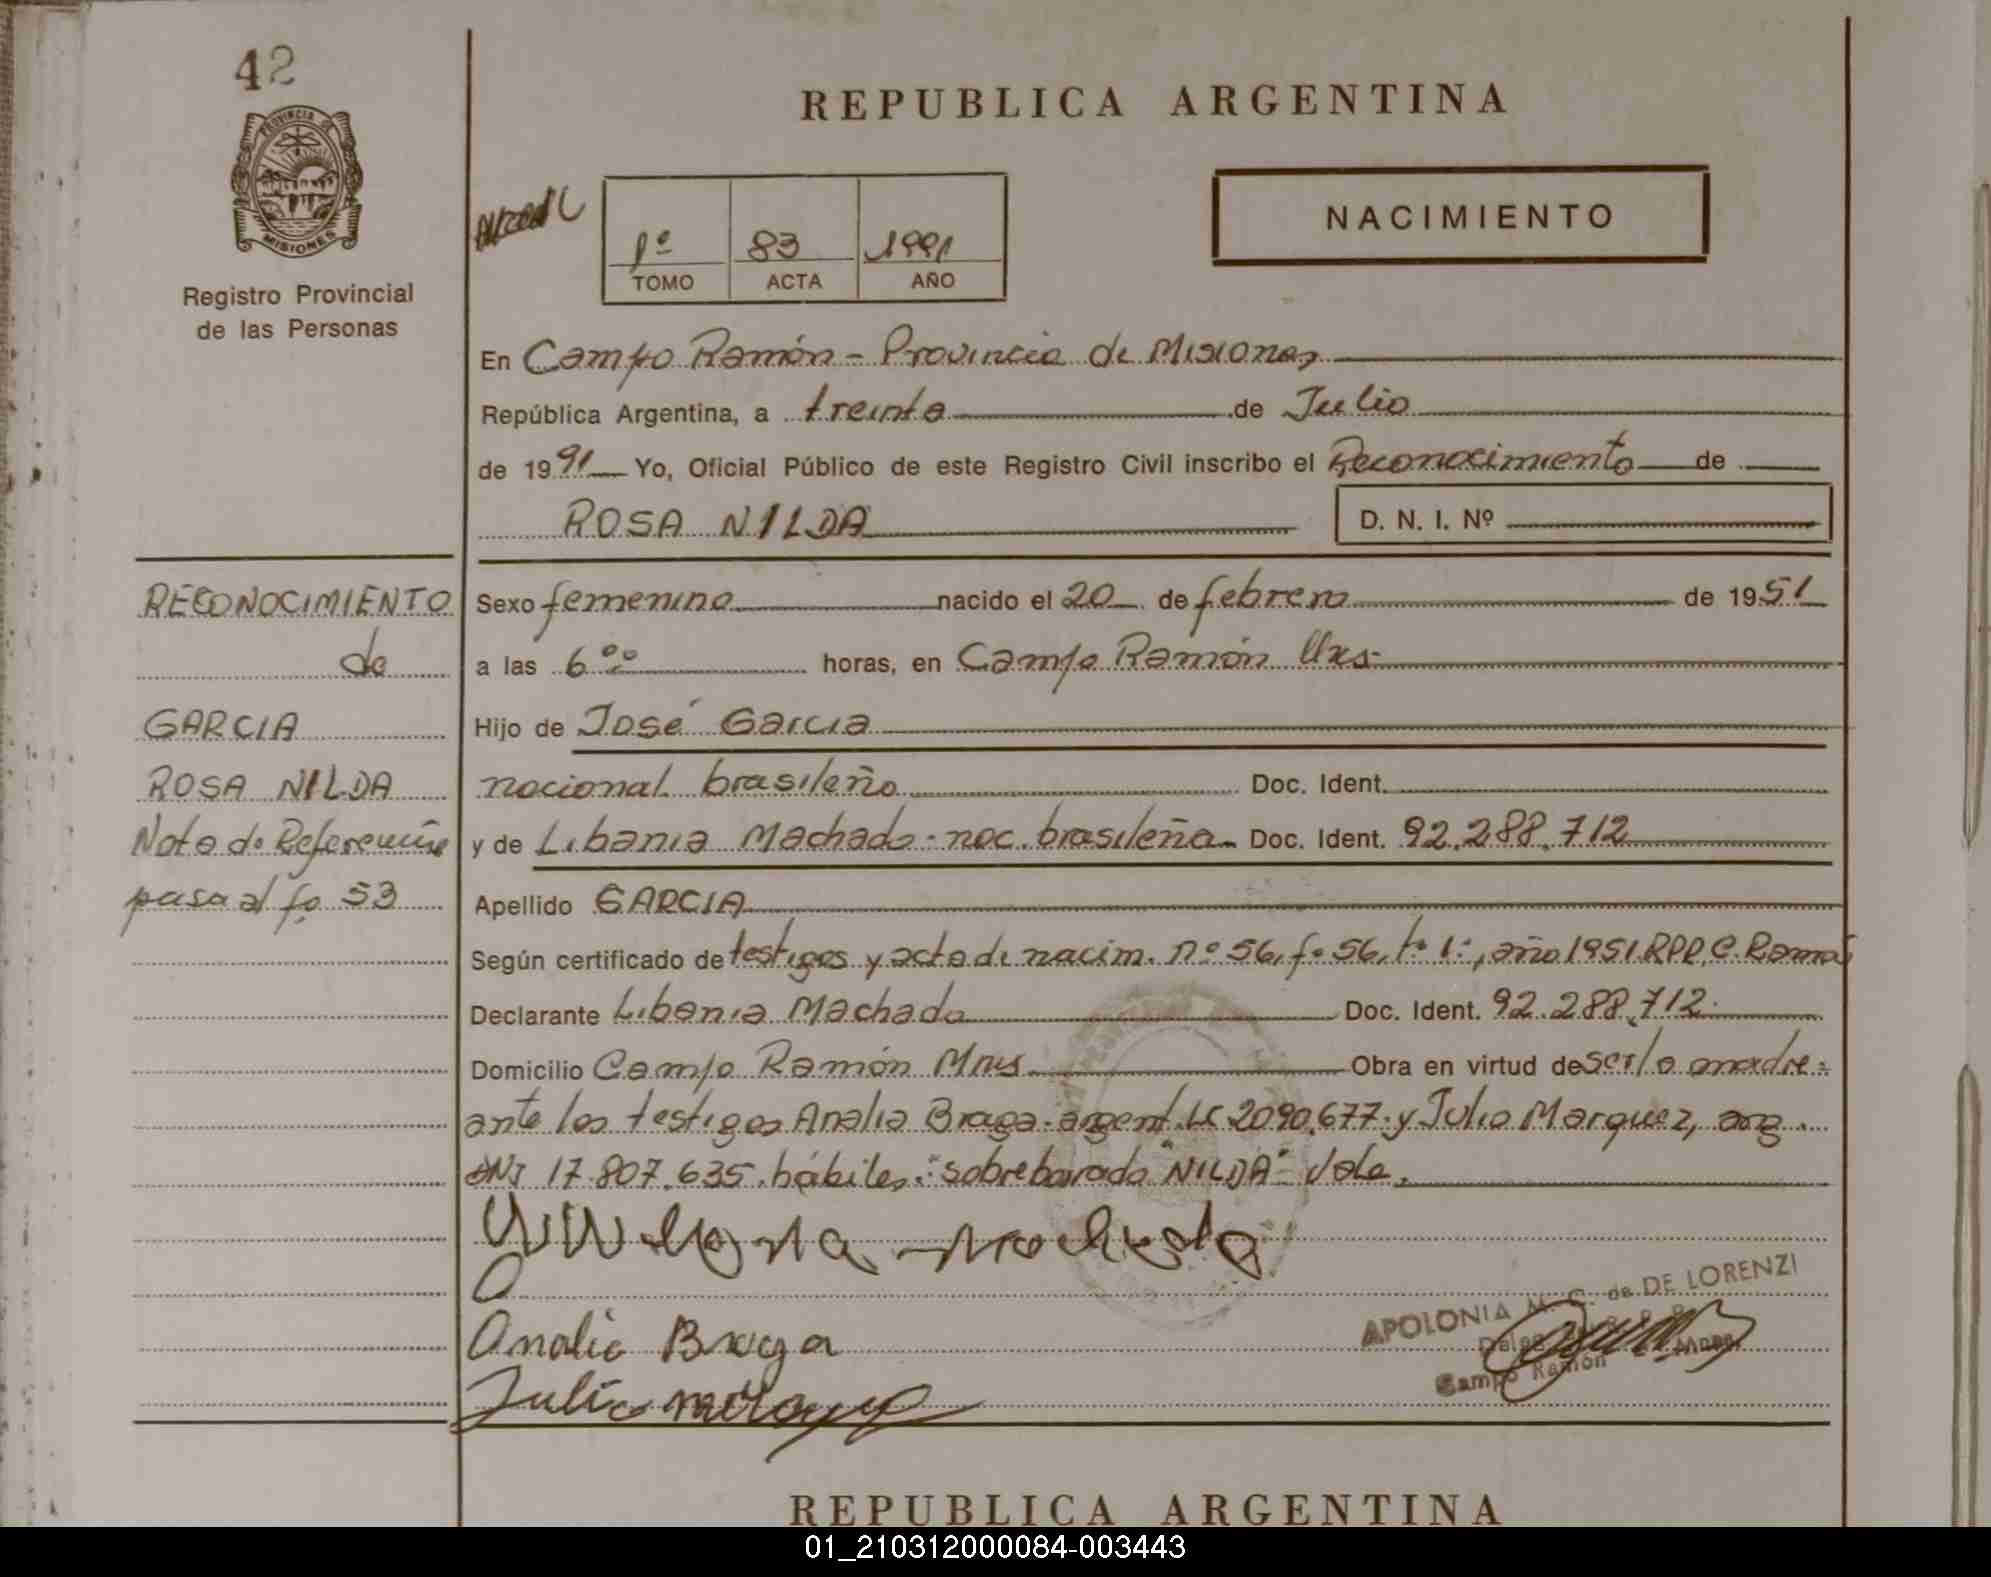 42
REPUBLICA ARGENTINA
PROVINCIA DE
MISIONES
Registro Provincial
de las Personas
1º 83 1991
TOMO ACTA AÑO
NACIMIENTO
En Campo Ramón - Provincia de Misiones
República Argentina, a treinta de Julio
de 1991 Yo, Oficial Público de este Registro Civil inscribo el Reconocimiento de
ROSA NILDA
D. N. I. Nº
RECONOCIMIENTO
de
GARCIA
ROSA NILDA
Nota de Referencia
pasa al fo 53
Sexo femenino nacido el 20 de febrero de 1951
a las 6 oo horas, en Campo Ramón
Hijo de José Garcia
nacional brasileño Doc. Ident.
y de Libania Machado - nac. brasileña Doc. Ident. 92.288.712
Apellido GARCIA
Según certificado de testigos y acta de nacim. nº 56, fº 56, tº 1º, año 1951 RPP, C. Ramón
Declarante Libania Machado Doc. Ident. 92.288.712
Domicilio Campo Ramón Mnes Obra en virtud de ser la madre -
ante los testigos Analia Braga - argent. LC 2090.677 y Julio Marquez, arg.
DNI 17.807.635. hábiles. sobreborrado "NILDA" Vale.
Analia Braga
Julio
APOLONIA M. C. de DE LORENZI
Campo Ramón Mnes
REPUBLICA ARGENTINA
01_210312000084-003443